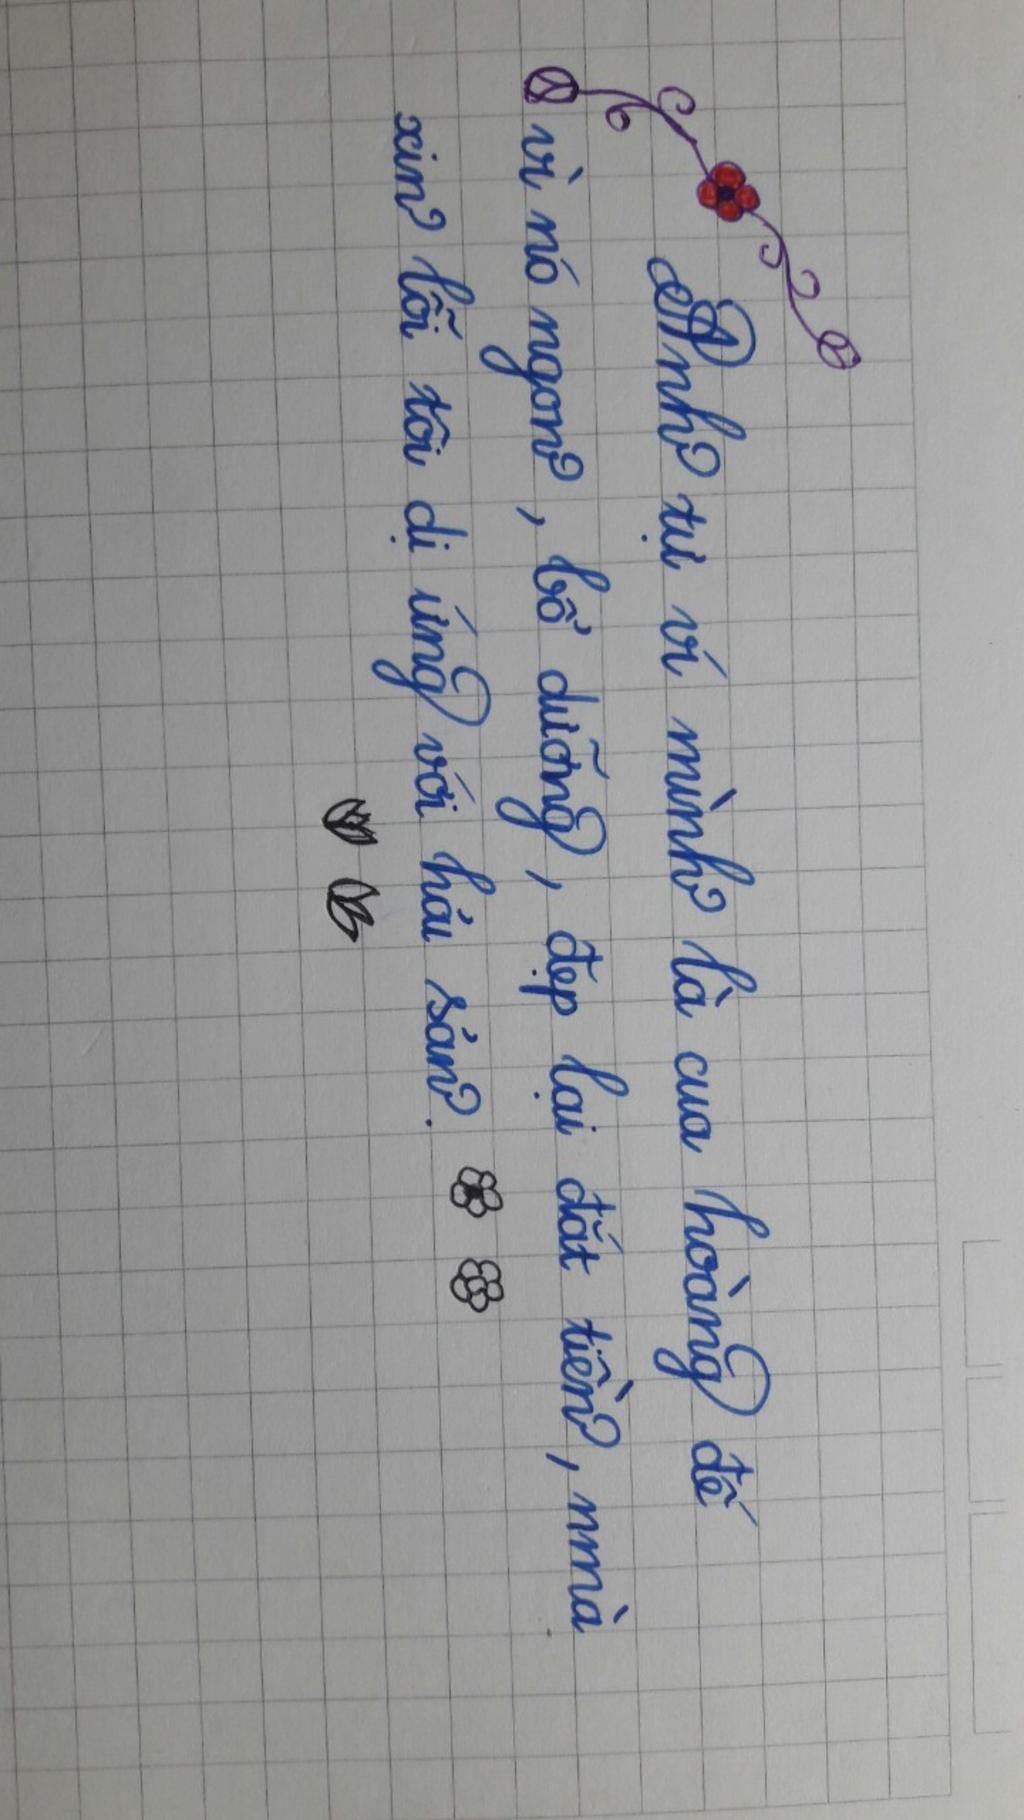 Anh tự ví mình là cua hoàng đế
vì nó ngon, bổ dưỡng, đẹp lại đắt tiền, nmà
xin lỗi tôi dị ứng với hải sản.